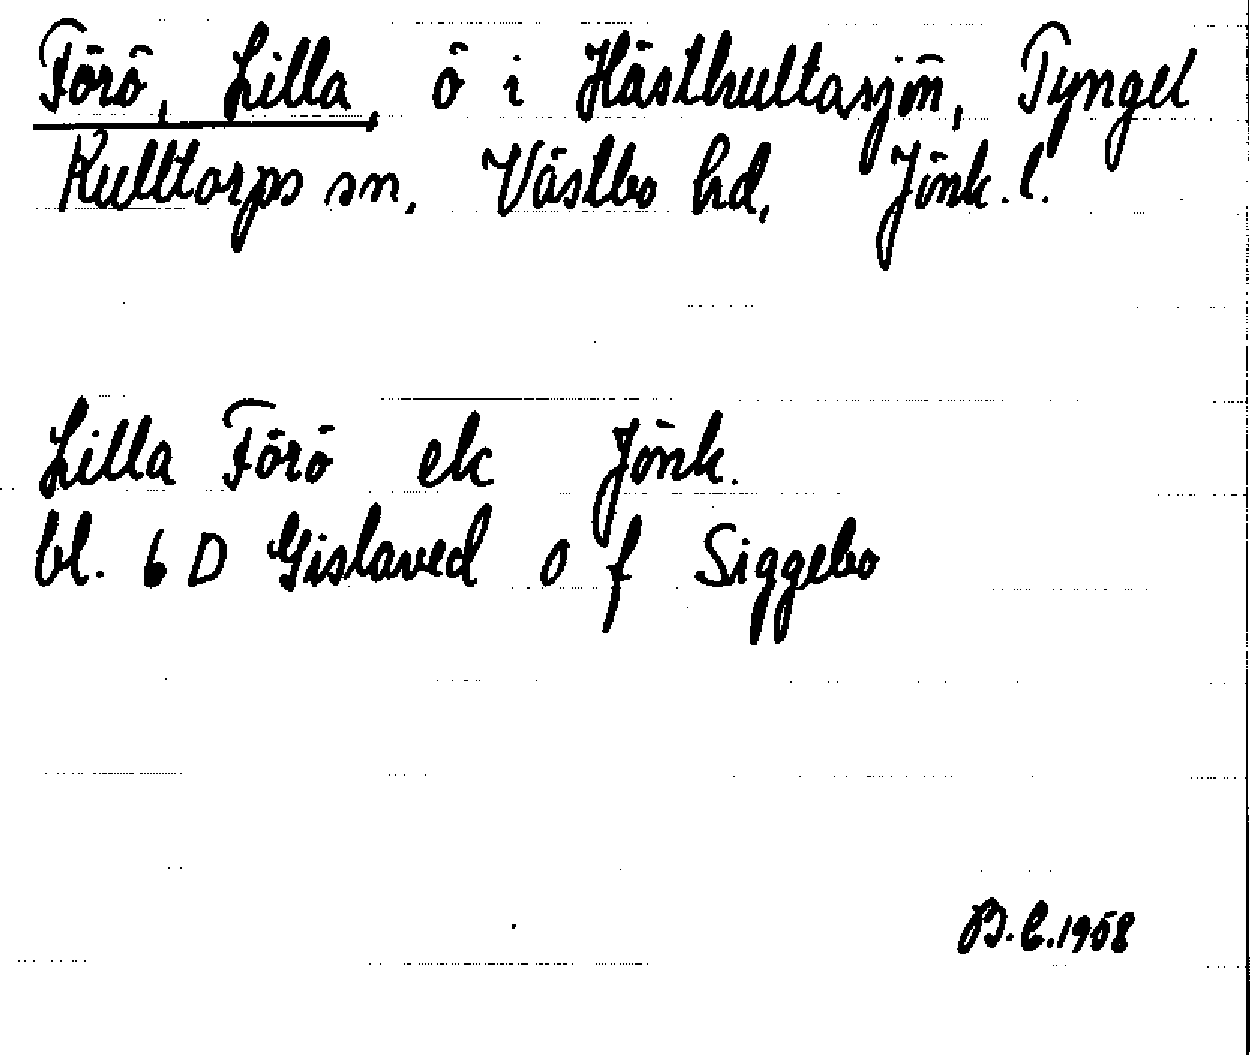 Förö, Lilla, ö i Hästhultasjön, Tyngel
Kulltorps sn. Västbo hd. Jönk. l.
Lilla Förö ek Jönk.
bl. 6 D Gislaved o f Siggebo
B.E. 1968